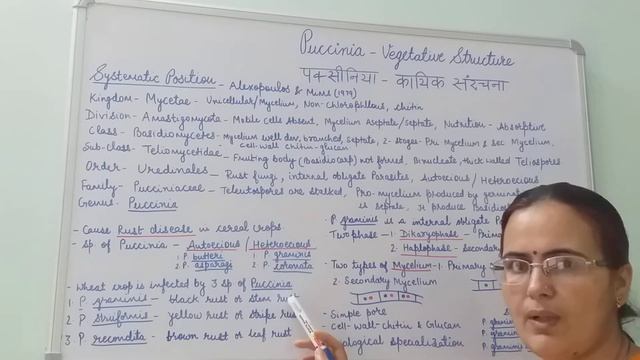 Puccinia - Vegetative Structure
पक्सीनिया - कायिक संरचना
Systematic Position - Alexopoulos & Mims (1979)
Kingdom - Mycetae - Unicellular/Mycelium, Non-Chlorophyllous, Chitin
Division - Amastigomycota - Mobile cells Absent, Mycelium Aseptate/Septate, Nutrition - Absorptive
Class - Basidiomycetes - Mycelium well dev, branched, Septate, 2-stages - Pri Mycelium & Sec Mycelium,
cell-wall chitin-glucan
Sub-class - Teliomycetidae - Fruiting body (Basidiocarp) not formed, Binucleate, thick walled Teliospores
Order - Uredinales - Rust fungi, internal obligate Parasites, Autoecious / Heteroecious
Family - Pucciniaceae - Teleutospores are Stalked, Pro-mycelium produced by
is septate, produce
Genus - Puccinia
- Cause Rust disease in cereal crops
- Sp of Puccinia - Autoecious / Heteroecious
1. P. butleri 1. P. graminis
2. P. asparagi 2. P. coronata
- Wheat crop is infected by 3 sp of Puccinia
1. P. graminis - black rust or stem
2. P. striiformis - yellow rust or stripe
3. P. recondita - brown rust or leaf rust
- P. graminis is a internal obligate
Two phase - 1. Dikaryophase - Primary
2. Haplophase - Secondary
- Two types of Mycelium - 1. Primary
2. Secondary Mycelium
- Simple pore
- Cell-wall - Chitin & Glucan
specialization
P. graminis
P. graminis
P. graminis